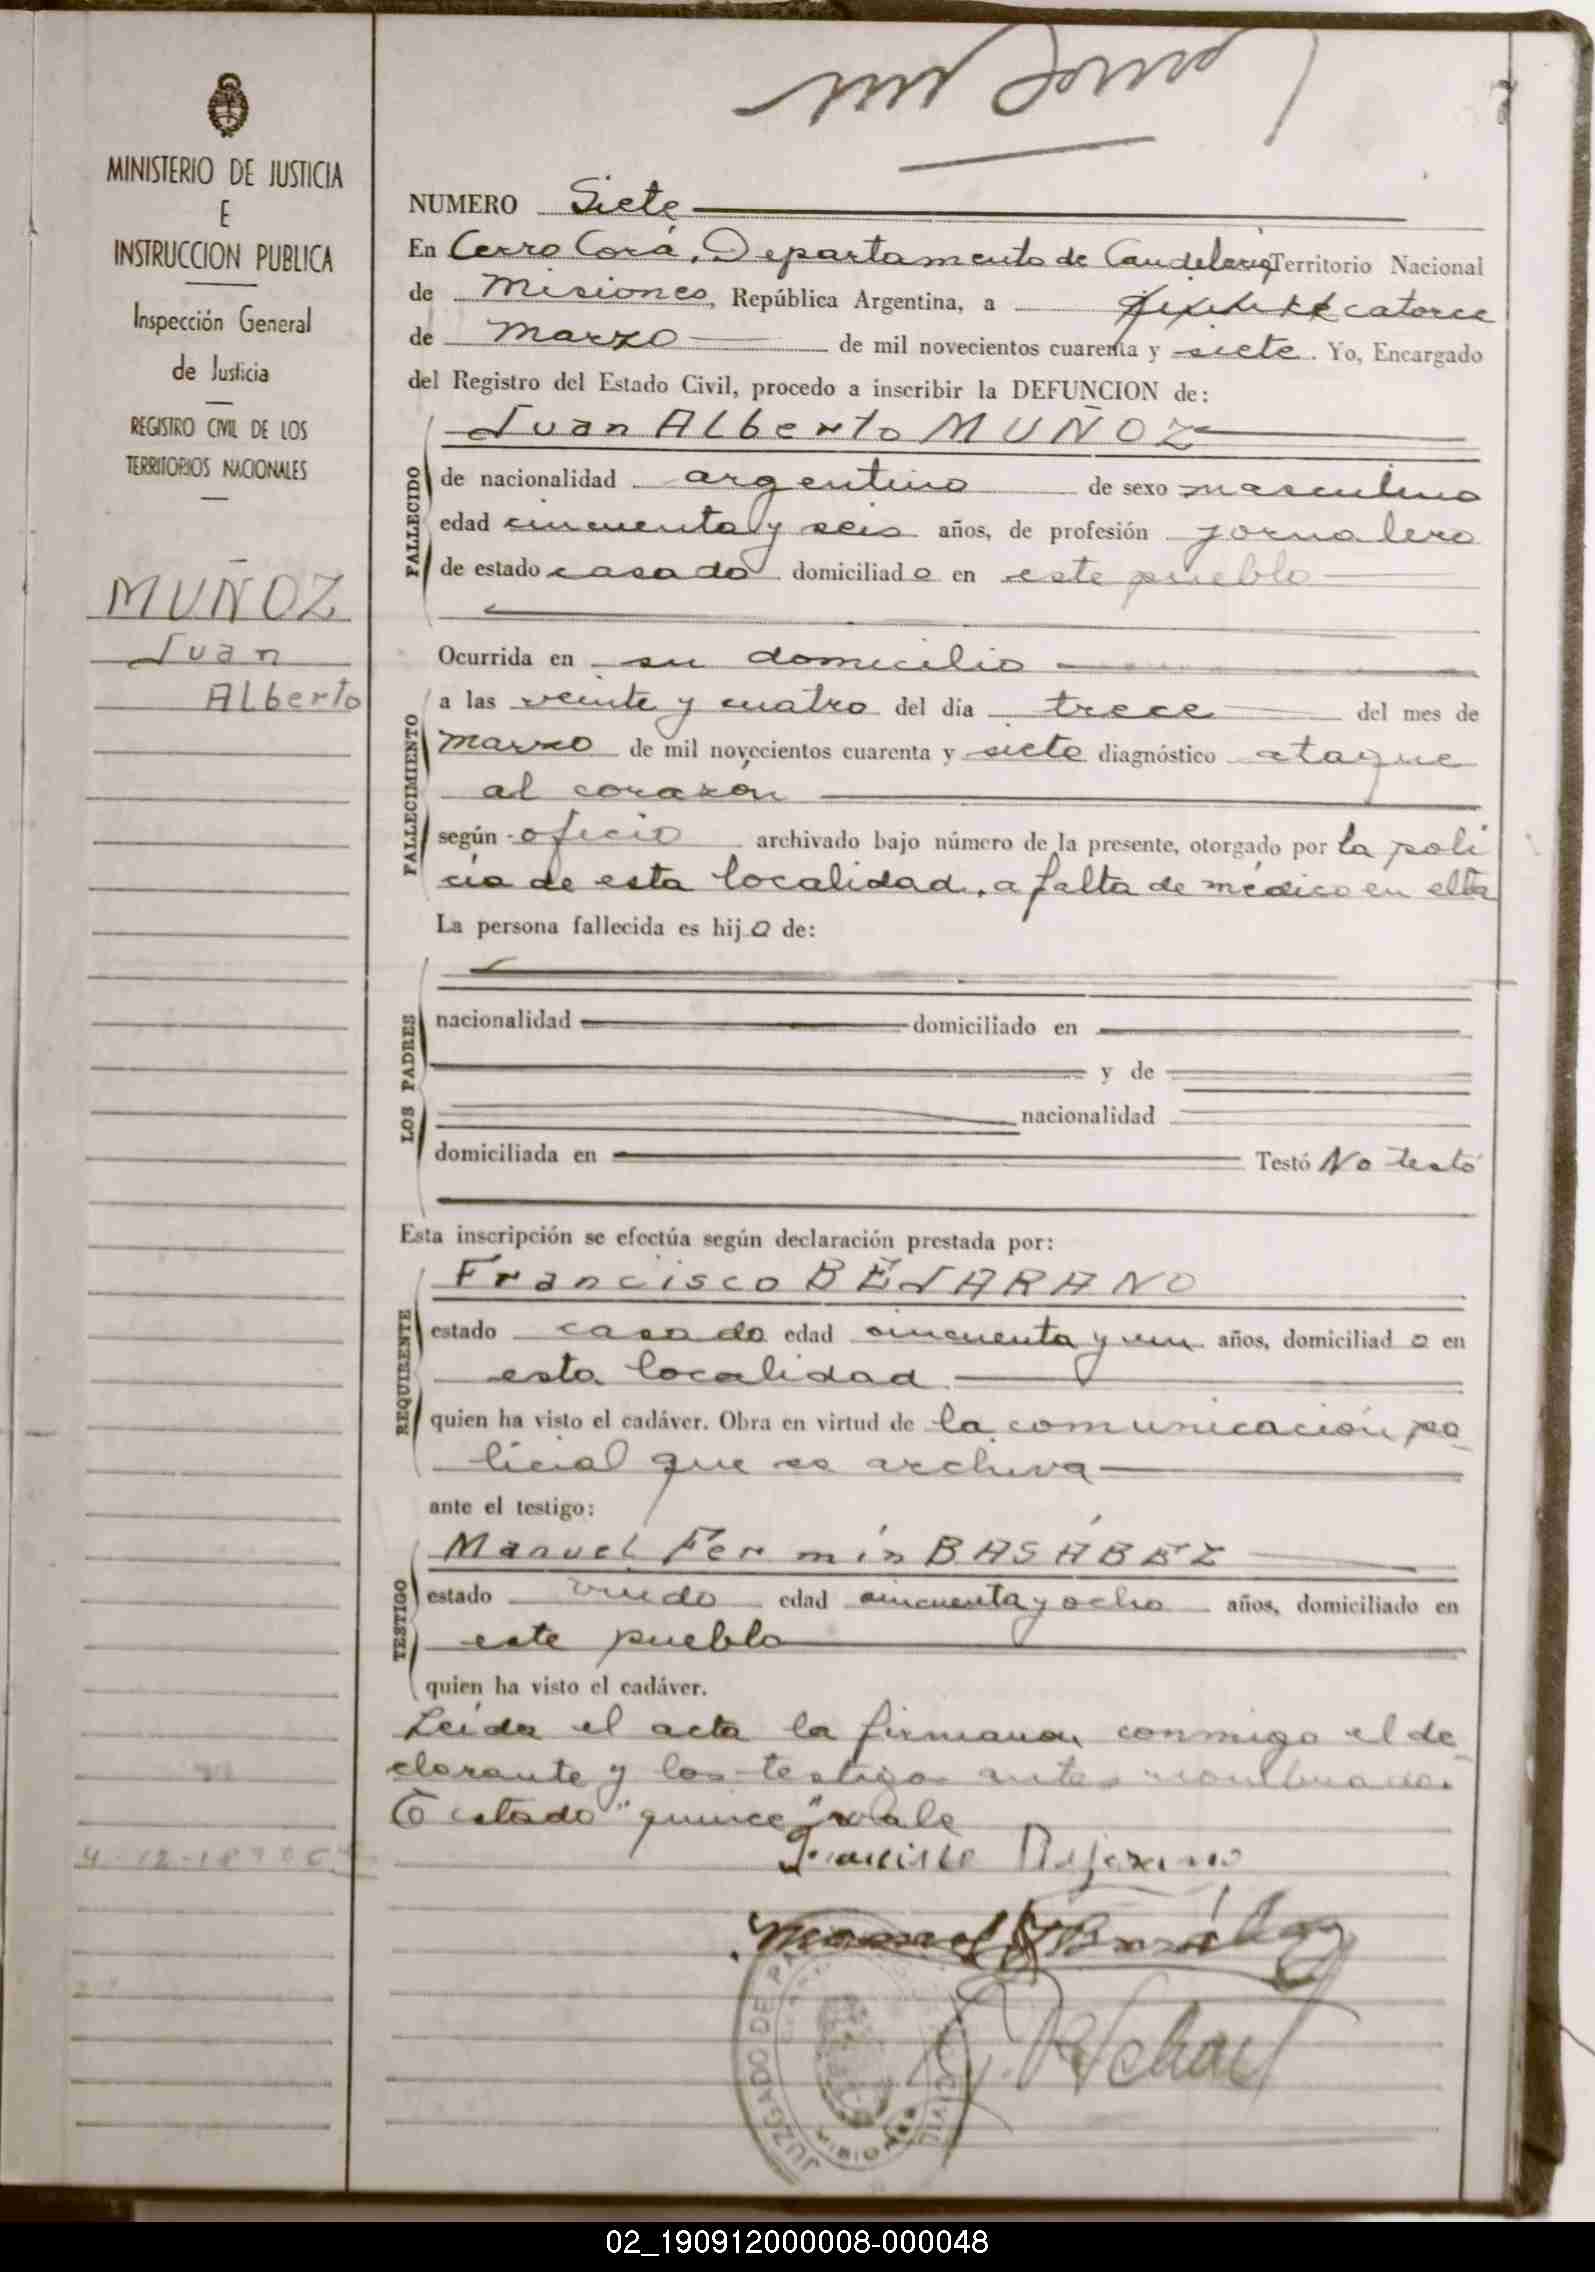 MINISTERIO DE JUSTICIA
E
INSTRUCCION PUBLICA
Inspección General
de Justicia
REGISTRO CIVIL DE LOS
TERRITORIOS NACIONALES
MUÑOZ
Juan
Alberto
NUMERO Siete
En Cerro Corá, Departamento de Candelaria Territorio Nacional
de Misiones, República Argentina, a catorce
de marzo de mil novecientos cuarenta y siete. Yo, Encargado
del Registro del Estado Civil, procedo a inscribir la DEFUNCION de:
Juan Alberto MUÑOZ
FALLECIDO
de nacionalidad argentino de sexo masculino
edad cincuenta y seis años, de profesión jornalero
de estado casado domiciliado en este pueblo
Ocurrida en su domicilio
FALLECIMIENTO
a las veinte y cuatro del día trece del mes de
marzo de mil novecientos cuarenta y siete diagnóstico ataque
al corazón
según oficio archivado bajo número de la presente, otorgado por la poli
cía de esta localidad, a falta de médico en ella
La persona fallecida es hijo de:
LOS PADRES
nacionalidad domiciliado en
y de
nacionalidad
domiciliada en Testó No testó
Esta inscripción se efectúa según declaración prestada por:
Francisco BEJARANO
REQUIRENTE
estado casado edad cincuenta y un años, domiciliado en
esta localidad
quien ha visto el cadáver. Obra en virtud de la comunicación po
licial que se archiva
ante el testigo:
Manuel Fermín BASÁBEZ
TESTIGO
estado viudo edad cincuenta y ocho años, domiciliado en
este pueblo
quien ha visto el cadáver.
Leída el acta la firmaron conmigo el de
clarante y los testigos antes nombrados
estado "quince" vale
Francisco Bejarano
JUZGADO DE PA
MISIONES
CIVIL
02_190912000008-000048